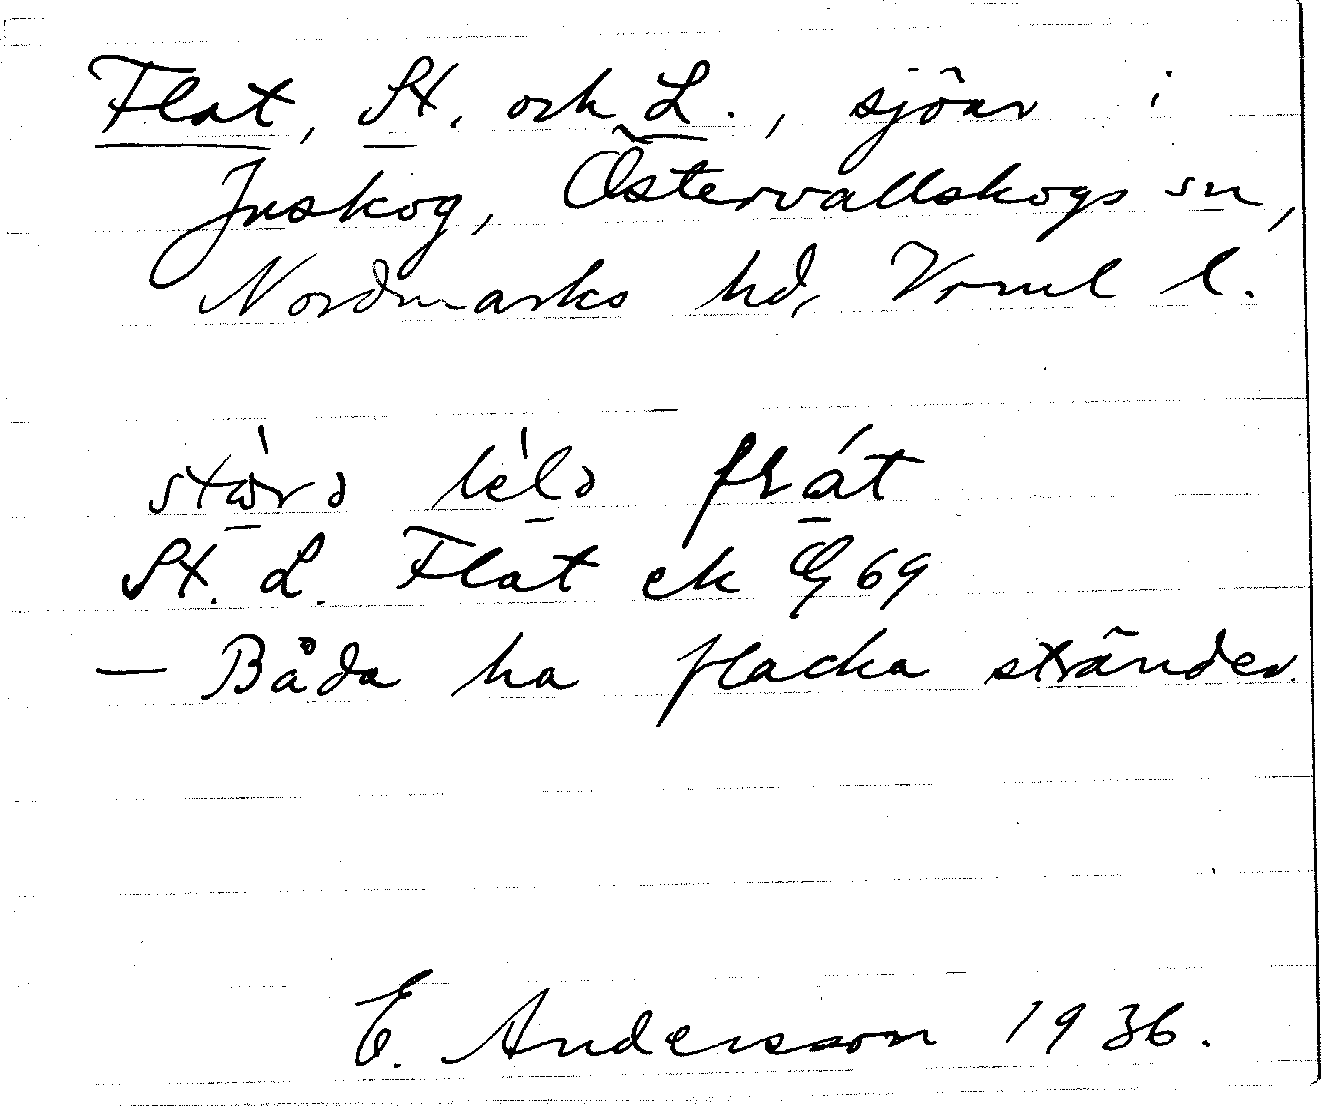 Flat, St. och L., sjöar i
Juskog, Östervallskogs sn,
Nordmarks hd, Vrml l.
St. L. Flat ek G 69
— Båda ha flacka stränder.
E. Andersson 1936.